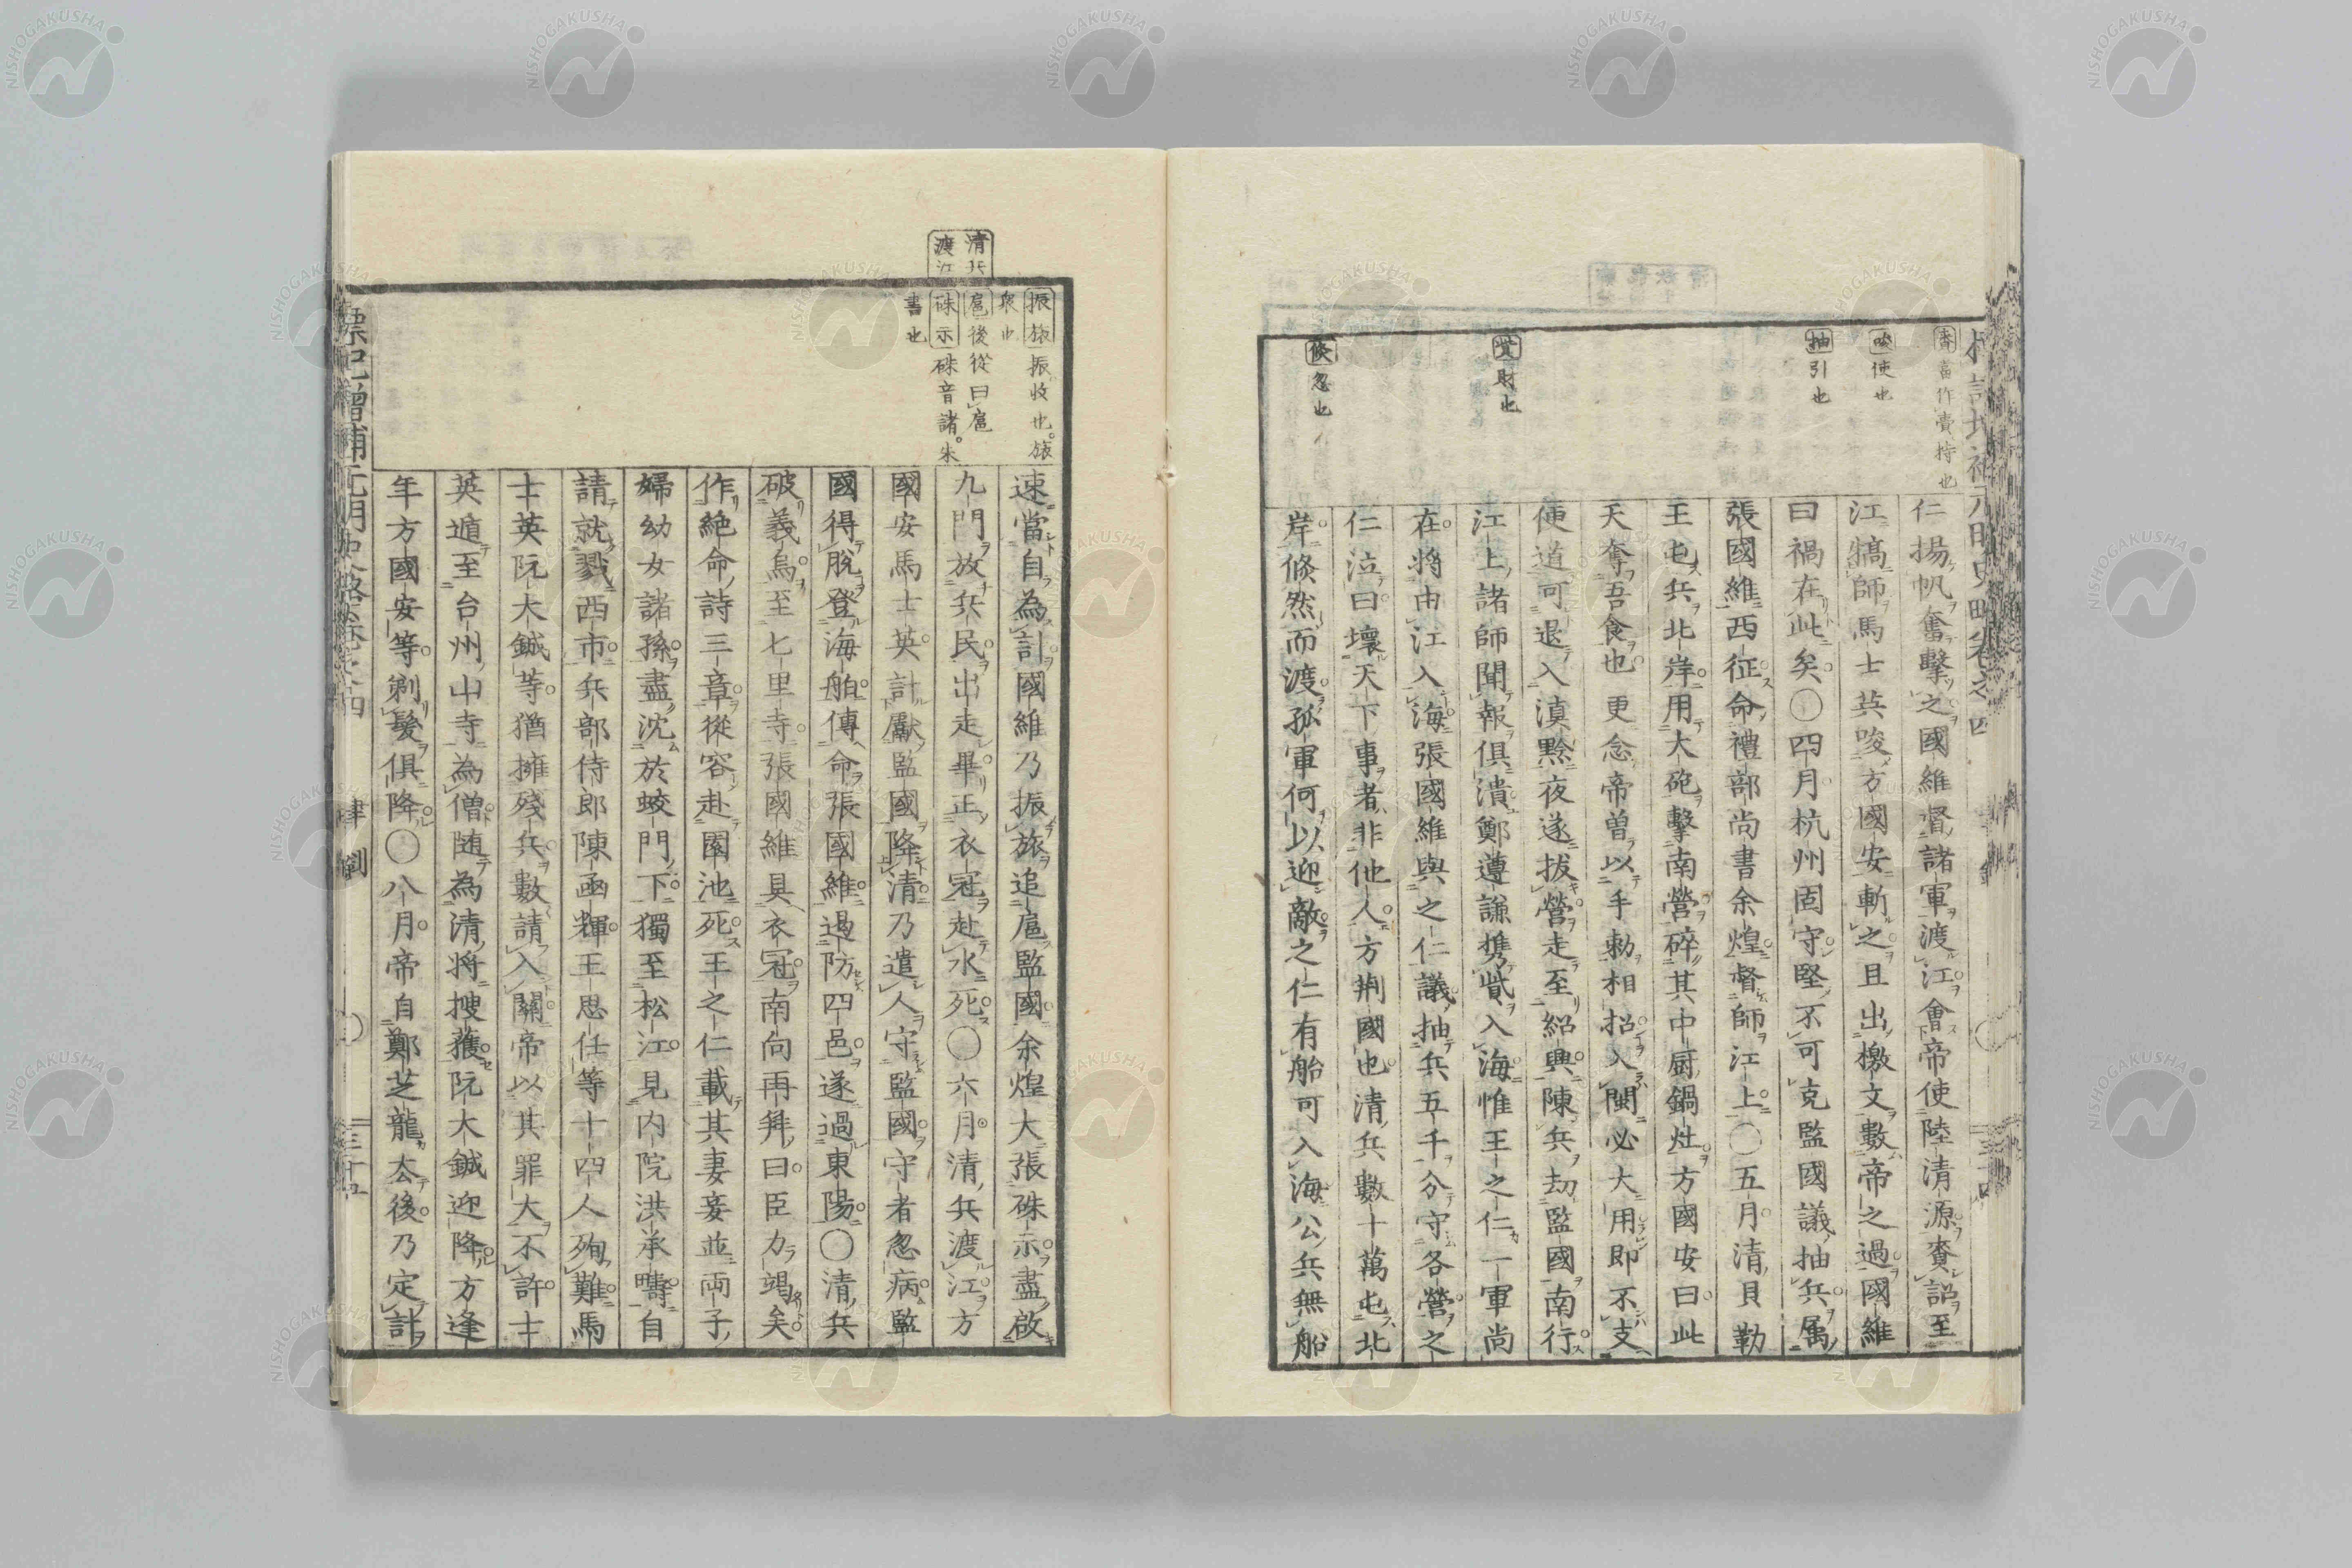 仁揚帆奮擊之國維督諸軍渡江會帝使陸清源賚詔至
江犒師馬士英唆方國安斬之且出檄文數帝之過國維
曰禍在此矣〇四月杭州固守堅不可克監國議抽兵属
張國維西征命禮部尚書余煌督師江上〇五月清貝勒
王屯兵北岸用大砲擊南營碎其中厨鍋灶方國安曰此
天奪吾食也更念帝曾以手勅相招入閩必大用即不支
便道可退入滇黔夜遂拔營走至紹興陳兵劫監國南行
江上諸師聞報俱潰鄭遵謙携貲入海惟王之仁一軍尚
在將由江入海張國維與之仁議抽兵五千分守各營之
仁泣曰壞天下事者非他人方荆國也清兵數十萬屯北
岸倐然而渡孤軍何以迎敵之仁有船可入海公兵無船
賚當作賫持也
唆使也
抽引也
貲財也
倐忽也
速當自為計國維乃振旅追扈監國余煌大張硃示盡啟
九門放兵民出走畢正衣冠赴水死〇六月清兵渡江方
國安馬士英計獻監國降清乃遣人守監國守者忽病監
國得脫登海舶傳命張國維遏防四邑遂過東陽〇清兵
破義烏至七里寺張國維具衣冠南向再拜曰臣力竭矣
作絶命詩三章從容赴園池死王之仁載其妻妾並兩子
婦幼女諸孫盡沈於蛟門下獨至松江見内院洪承疇自
請就戮西市兵部侍郎陳函輝王思任等十四人殉難馬
士英阮大鋮等猶擁殘兵數請入關帝以其罪大不許士
英遁至台州山寺為僧随為清將搜獲阮大鋮迎降方逢
年方國安等剃髮俱降〇八月帝自鄭芝龍去後乃定計
清兵
渡江
振旅振收也旅
衆也
扈後從曰扈
硃示硃音諸朱
書也
標記增補元明史略卷之四
NISHOGAKUSHA